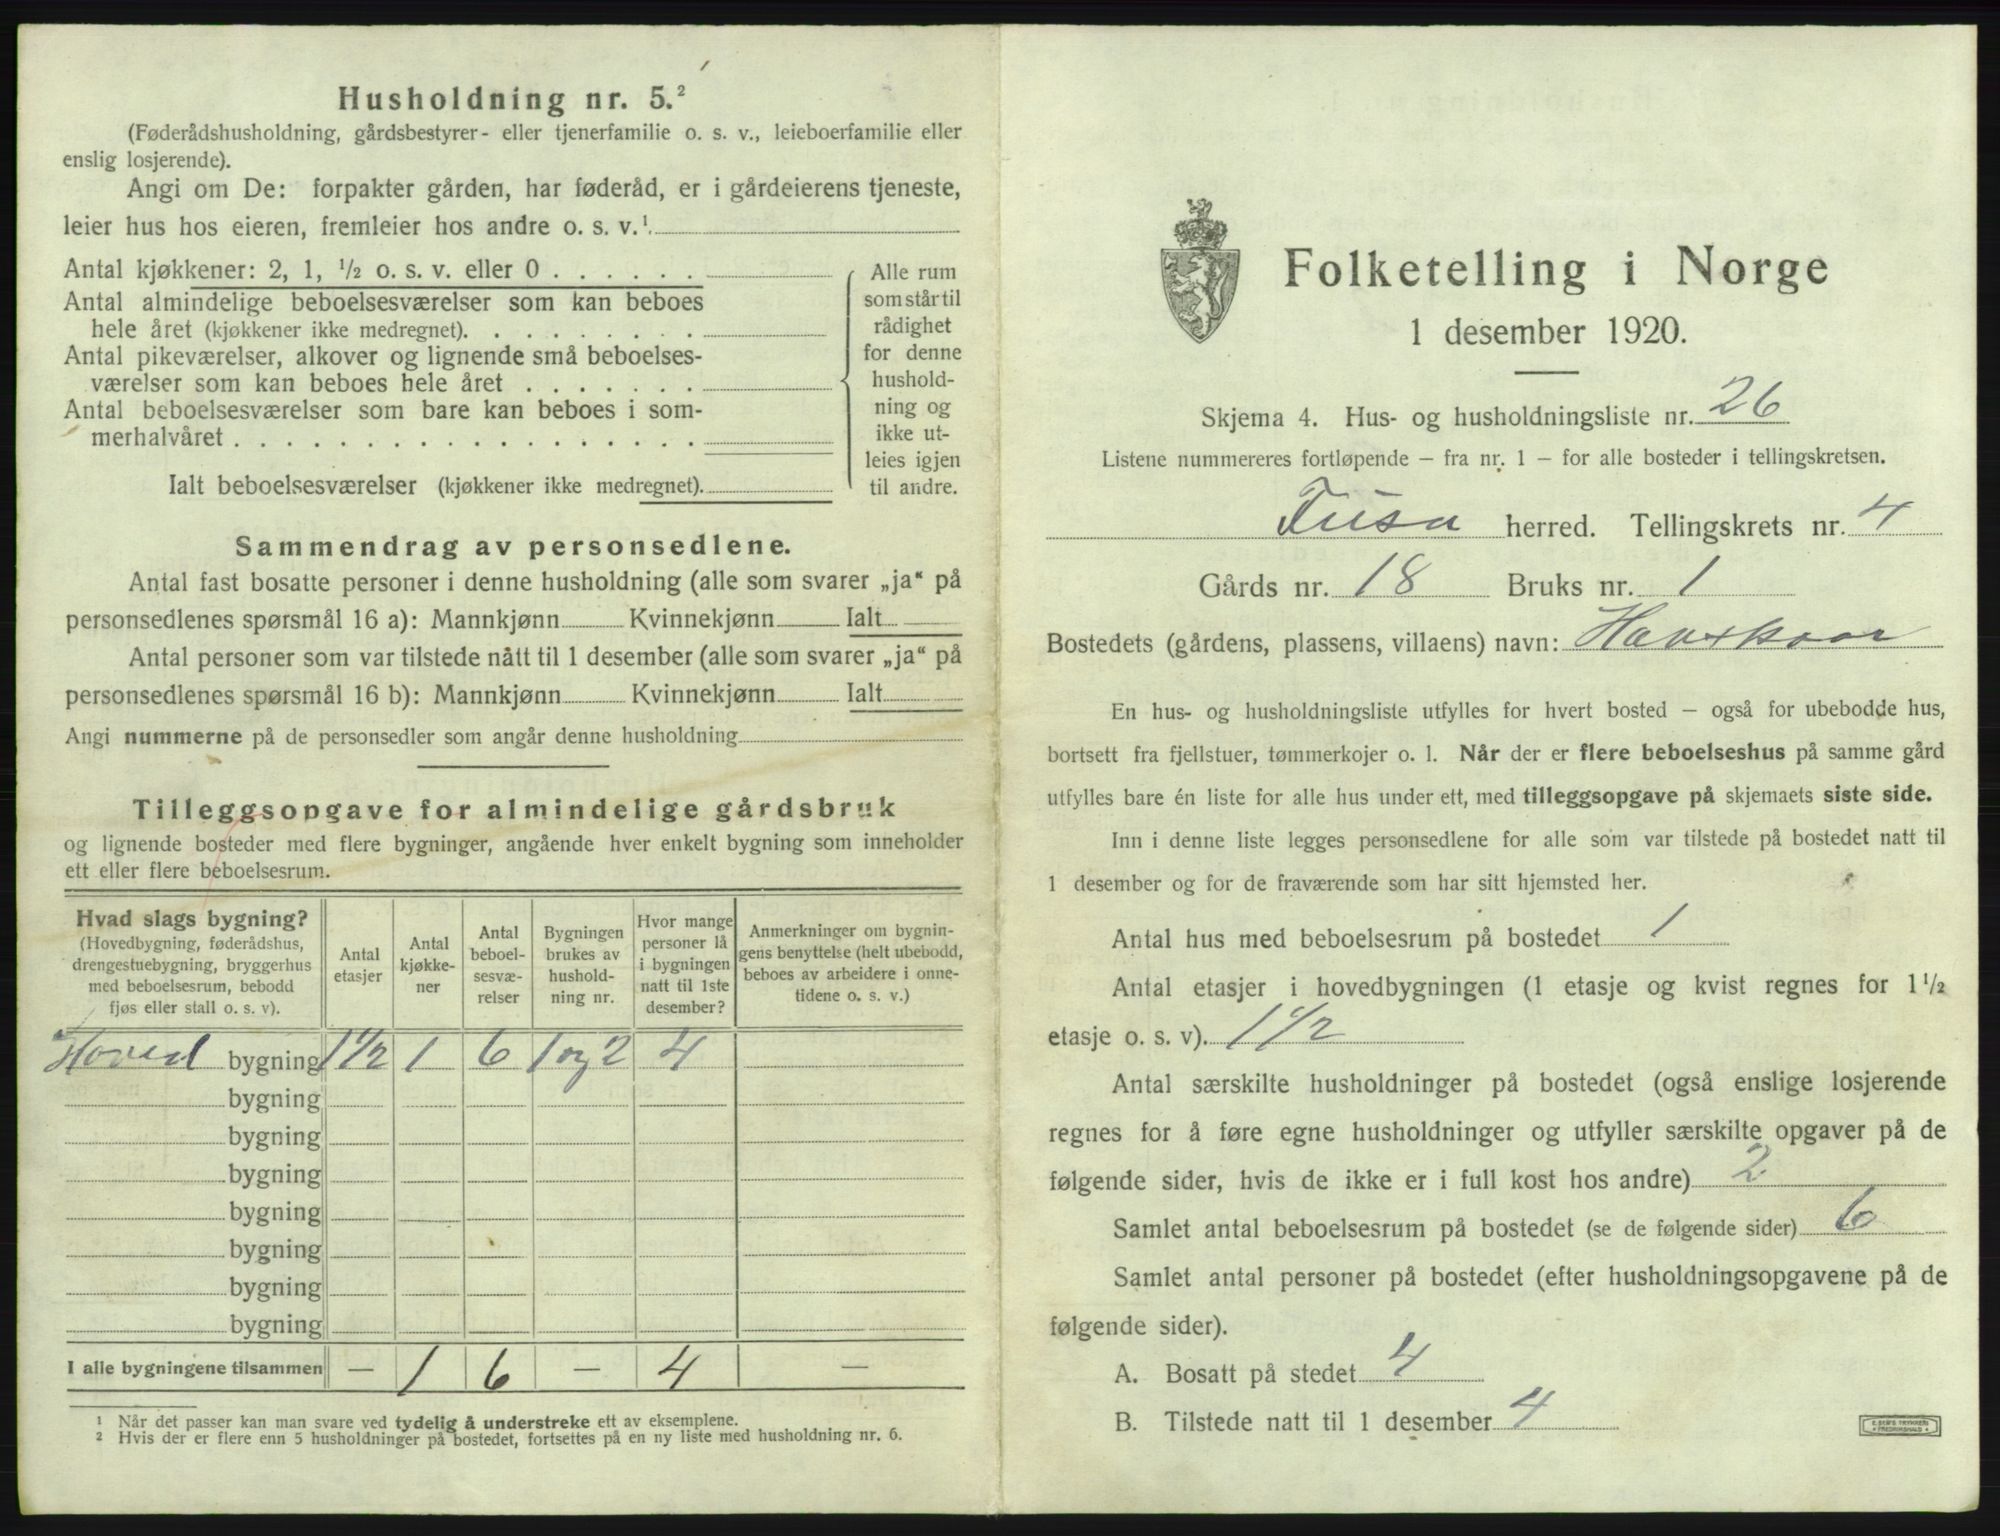 Husholdning nr. 5.²
(Føderådshusholdning, gårdsbestyrer- eller tjenerfamilie o. s. v., leieboerfamilie eller
enslig losjerende).
Angi om De: forpakter gården, har føderåd, er i gårdeierens tjeneste,
leier hus hos eieren, fremleier hos andre o. s. v.¹
Antal kjøkkener: 2, 1, ½ o. s. v. eller 0 . . . . . .
Antal almindelige beboelsesværelser som kan beboes
hele året (kjøkkener ikke medregnet). . . . . . . .
Antal pikeværelser, alkover og lignende små beboelses-
værelser som kan beboes hele året . . . . . . .
Antal beboelsesværelser som bare kan beboes i som-
merhalvåret . . . . . . . . . . . . . . . . . .
Ialt beboelsesværelser (kjøkkener ikke medregnet).
Alle rum
som står til
rådighet
for denne
hushold-
ning og
ikke ut-
leies igjen
til andre.
Sammendrag av personsedlene.
Antal fast bosatte personer i denne husholdning (alle som svarer „ja“ på
personsedlenes spørsmål 16 a): Mannkjønn Kvinnekjønn Ialt
Antal personer som var tilstede nått til 1 desember (alle som svarer „ja“ på
personsedlenes spørsmål 16 b): Mannkjønn Kvinnekjønn Ialt
Angi nummerne på de personsedler som angår denne husholdning
Tilleggsopgave for almindelige gårdsbruk
og lignende bosteder med flere bygninger, angående hver enkelt bygning som inneholder
ett eller flere beboelsesrum.
Hvad slags bygning?
(Hovedbygning, føderådshus,
drengestuebygning, bryggerhus
med beboelsesrum, bebodd
fjøs eller stall o. s. v).
Antal
etasjer
Antal
kjøkke-
ner
Antal
beboel-
sesvæ-
relser
Bygningen
brukes av
hushold-
ning nr.
Hvor mange
personer lå
i bygningen
natt til 1ste
desember?
Anmerkninger om bygnin-
gens benyttelse (helt ubebodd,
beboes av arbeidere i onne-
tidene o. s. v.)
Hoved bygning 1½ 1 6 1 og 2 4
bygning
bygning
bygning
bygning
bygning
bygning
bygning
I alle bygningene tilsammen — 1 6 — 4 —
¹ Når det passer kan man svare ved tydelig å understreke ett av eksemplene.
² Hvis der er flere enn 5 husholdninger på bostedet, fortsettes på en ny liste med husholdning nr. 6.
Folketelling i Norge
1 desember 1920.
Skjema 4. Hus- og husholdningsliste nr. 26
Listene nummereres fortløpende – fra nr. 1 – for alle bosteder i tellingskretsen.
Fusa herred. Tellingskrets nr. 4
Gårds nr. 18 Bruks nr. 1
Bostedets (gårdens, plassens, villaens) navn: Havskaar
En hus- og husholdningsliste utfylles for hvert bosted – også for ubebodde hus,
bortsett fra fjellstuer, tømmerkojer o. l. Når der er flere beboelseshus på samme gård
utfylles bare én liste for alle hus under ett, med tilleggsopgave på skjemaets siste side.
Inn i denne liste legges personsedlene for alle som var tilstede på bostedet natt til
1 desember og for de fraværende som har sitt hjemsted her.
Antal hus med beboelsesrum på bostedet 1
Antal etasjer i hovedbygningen (1 etasje og kvist regnes for 1½
etasje o. s. v). 1½
Antal særskilte husholdninger på bostedet (også enslige losjerende
regnes for å føre egne husholdninger og utfyller særskilte opgaver på de
følgende sider, hvis de ikke er i full kost hos andre) 2
Samlet antal beboelsesrum på bostedet (se de følgende sider) 6
Samlet antal personer på bostedet (efter husholdningsopgavene på de
følgende sider).
A. Bosatt på stedet 4
B. Tilstede natt til 1 desember 4